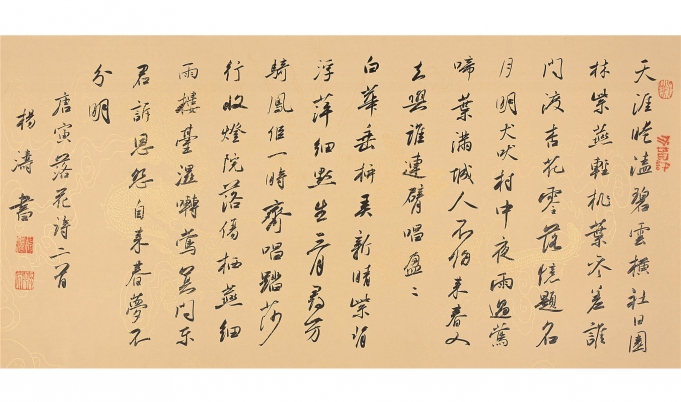 天涯晻溘碧雲橫社日園
林紫燕輕桃葉參差誰
問渡杏花零落憶題名
月明犬吠村中夜雨過鶯
啼葉滿城人不歸來春又
去與誰連臂唱盈〻
白華垂弄新晴紫背
浮萍細點生三月尋芳
騎鳳侶一時齊唱踏莎
行收燈院落傷栖燕細
雨樓臺濕囀鶯莫問東
君訴恩怨自來春夢不
分明
唐寅落花詩二首
楊濤書